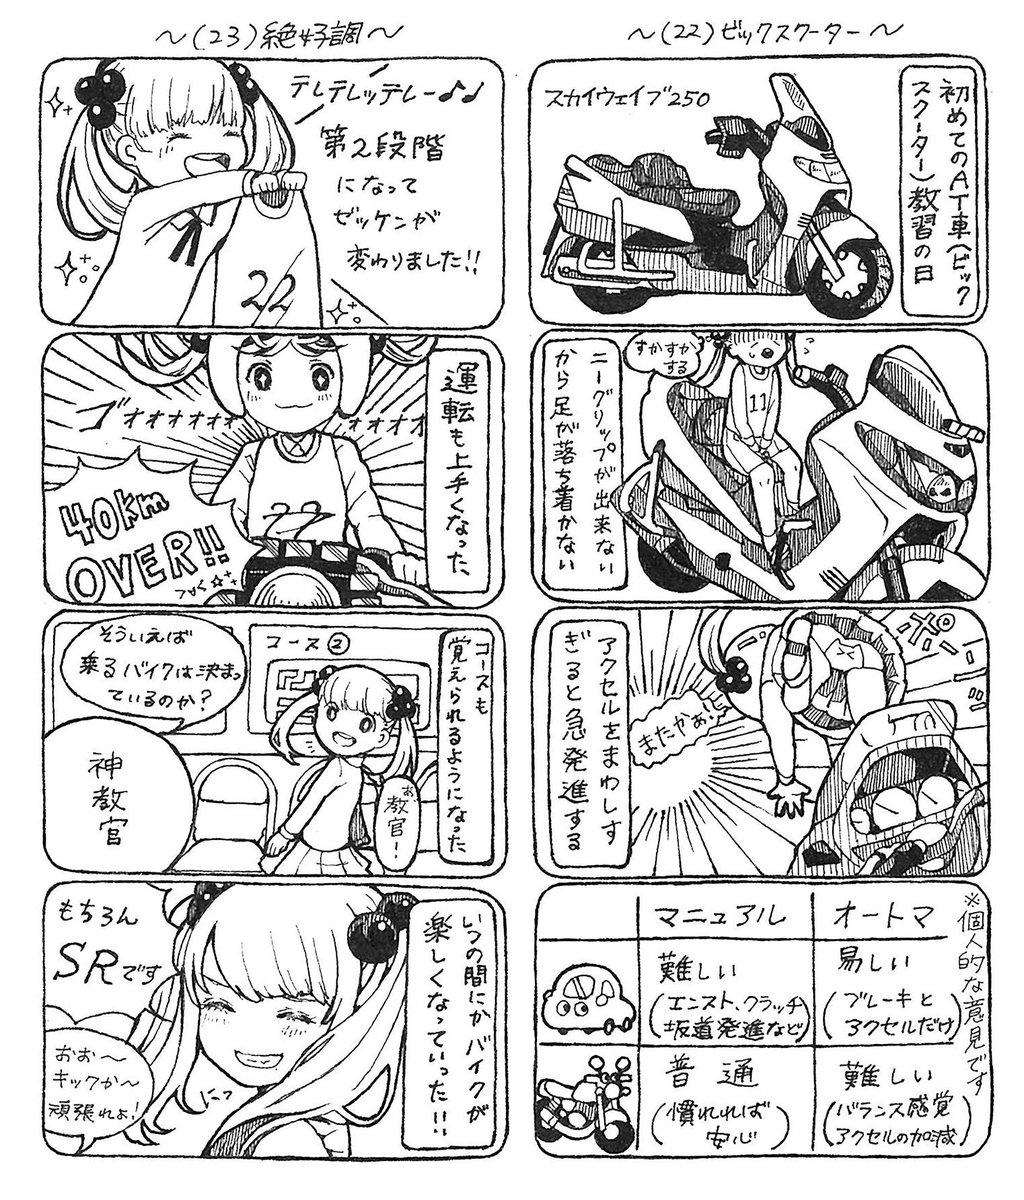 ～(22)ビックスクーター～
初めてのAT車(ビック
スクーター)教習の日
スカイウェイブ250
ニーグリップが出来ない
から足が落ち着かない
すかすか
する
11
アクセルをまわしす
ぎると急発進する
ポーーー
またかぁ!!
※個人的な意見です
マニュアル
オートマ
難しい
(エンスト、クラッチ
坂道発進など)
易しい
(ブレーキと
アクセルだけ)
普通
(慣れれば
安心)
難しい
(バランス感覚
アクセルの加減)
～(23)絶好調～
テレテレッテレー♪♪
第2段階
になって
ゼッケンが
変わりました!!
22
運転も上手くなった、
ゴォォォォォォ
ォォォォ
22
40km
OVER!!
コースも
覚えられるようになった
コース②
そういえば
乗るバイクは決まっ
ているのか?
神教官
あ
教官!
いつの間にかバイクが
楽しくなっていった!!
もちろん
SRです
にっ
おお～
キックか～
頑張れよ!